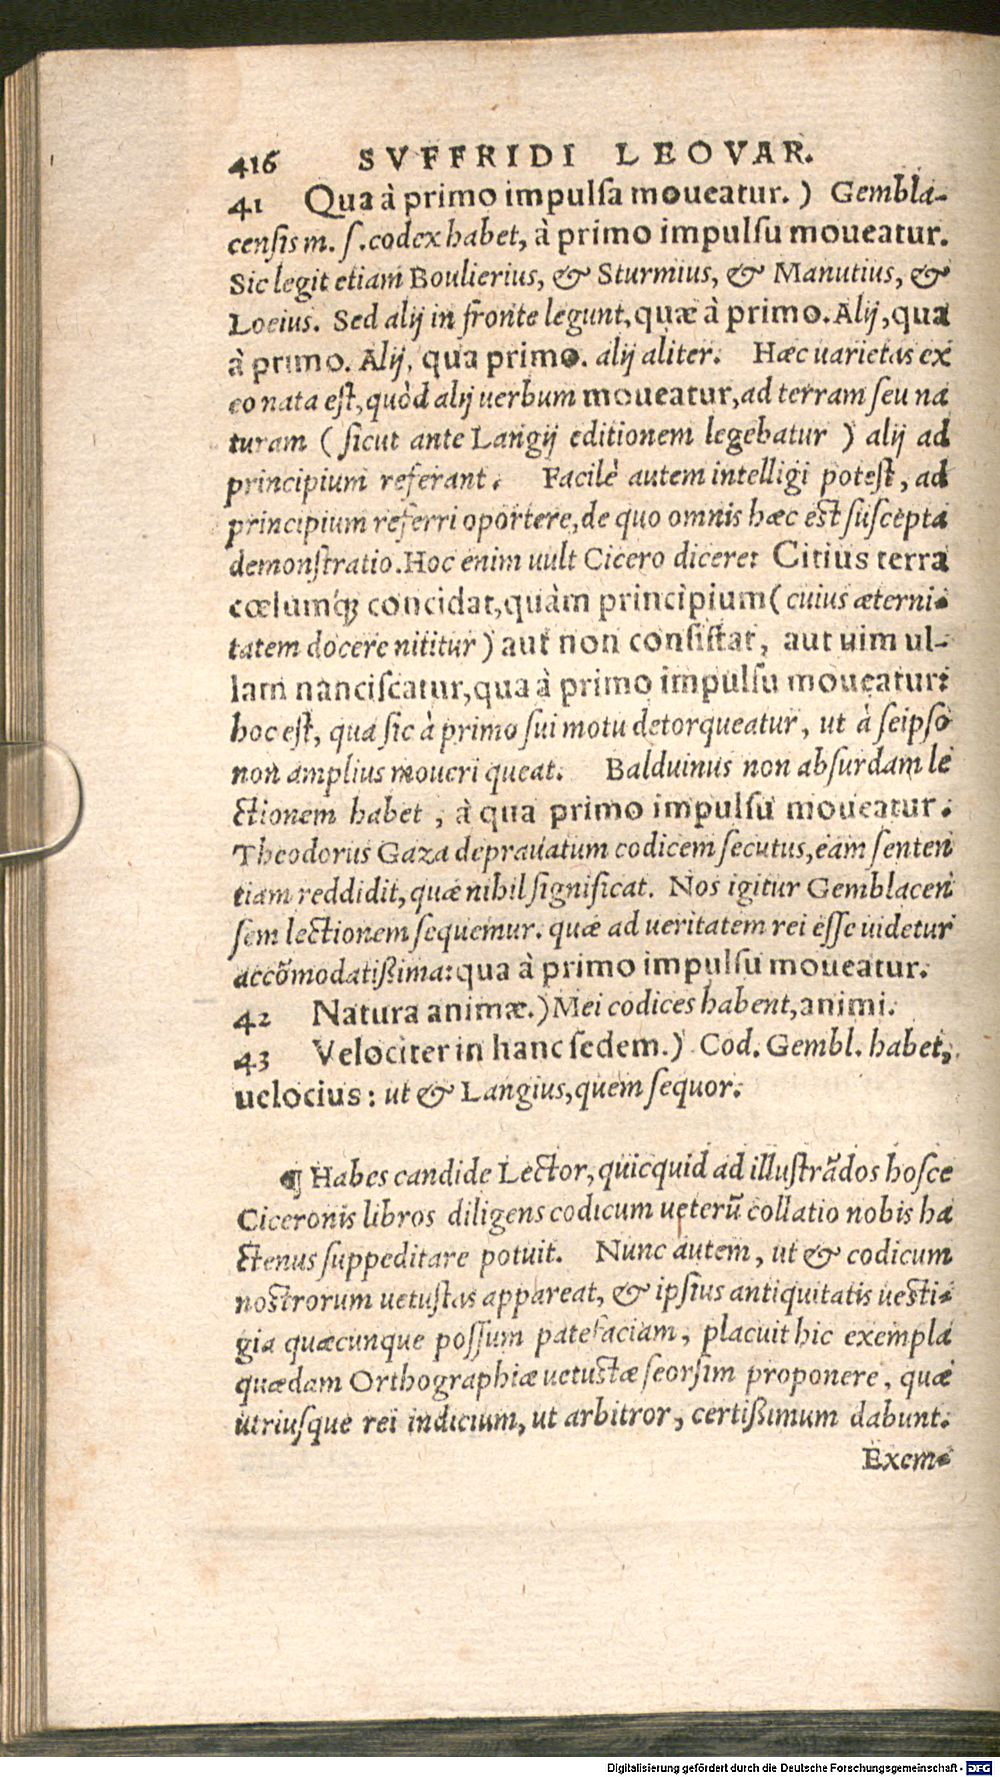 416 SVFFRIDI LEOVAR.
41 Qua à primo impulsa moueatur. ) Gembla-
censis m. s. codex habet, à primo impulsu moueatur.
Sic legit etiam Boulierius, & Sturmius, & Manutius, &
Loeius. Sed alij in fronte legunt, quæ à primo. Alij, qua
à primo. Alij, qua primo. alij aliter. Hæc uarietas ex
eo nata est, quòd alij uerbum moueatur, ad terram seu na
turam ( sicut ante Langij editionem legebatur ) alij ad
principium referant. Facilè autem intelligi potest, ad
principium referri oportere, de quo omnis hæc est suscepta
demonstratio. Hoc enim uult Cicero dicere: Citius terra
cœlumq́; concidat, quàm principium ( cuius æterni-
tatem docere nititur ) aut non consistat, aut uim ul-
lam nanciscatur, qua à primo impulsu moueatur:
hoc est, qua sic à primo sui motu detorqueatur, ut à seipso
non amplius moueri queat. Balduinus non absurdam le
ctionem habet, à qua primo impulsu moueatur.
Theodorus Gaza deprauatum codicem secutus, eam senten
tiam reddidit, quæ nihil significat. Nos igitur Gemblacen
sem lectionem sequemur. quæ ad ueritatem rei esse uidetur
accõmodatißima: qua à primo impulsu moueatur.
42 Natura animæ. ) Mei codices habent, animi.
43 Velociter in hanc sedem. ) Cod. Gembl. habet,
uelocius: ut & Langius, quem sequor.
¶ Habes candide Lector, quicquid ad illustrãdos hosce
Ciceronis libros diligens codicum ueterũ collatio nobis ha
ctenus suppeditare potuit. Nunc autem, ut & codicum
nostrorum uetustas appareat, & ipsius antiquitatis uesti-
gia quæcunque possum patefaciam, placuit hic exempla
quædam Orthographiæ uetustæ seorsim proponere, quæ
utriusque rei indicium, ut arbitror, certißimum dabunt.
Exem-
Digitalisierung gefördert durch die Deutsche Forschungsgemeinschaft - DFG